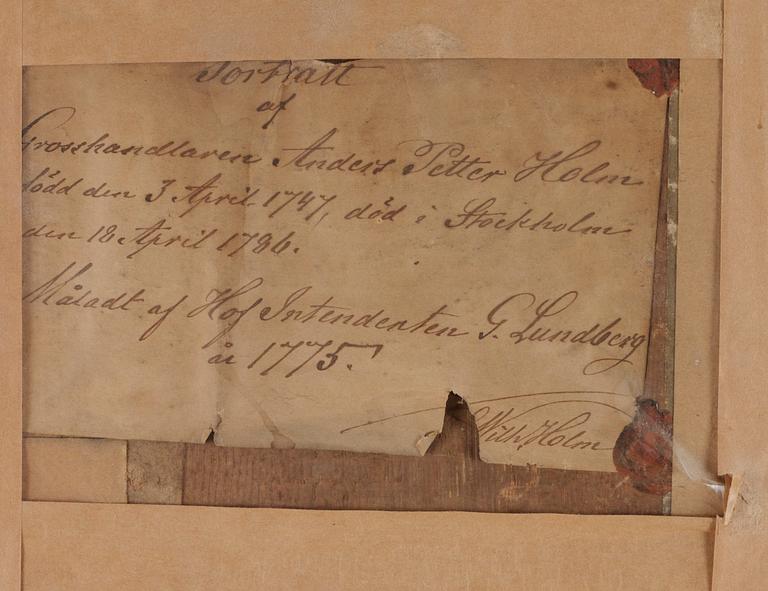 Porträtt
af
Grosshandlaren Anders Petter Holm
född den 3 April 1747, död i Stockholm
den 18 April 1786.
Måladt af Hof Intendenten G. Lundberg
år 1775.
Wilh. Holm